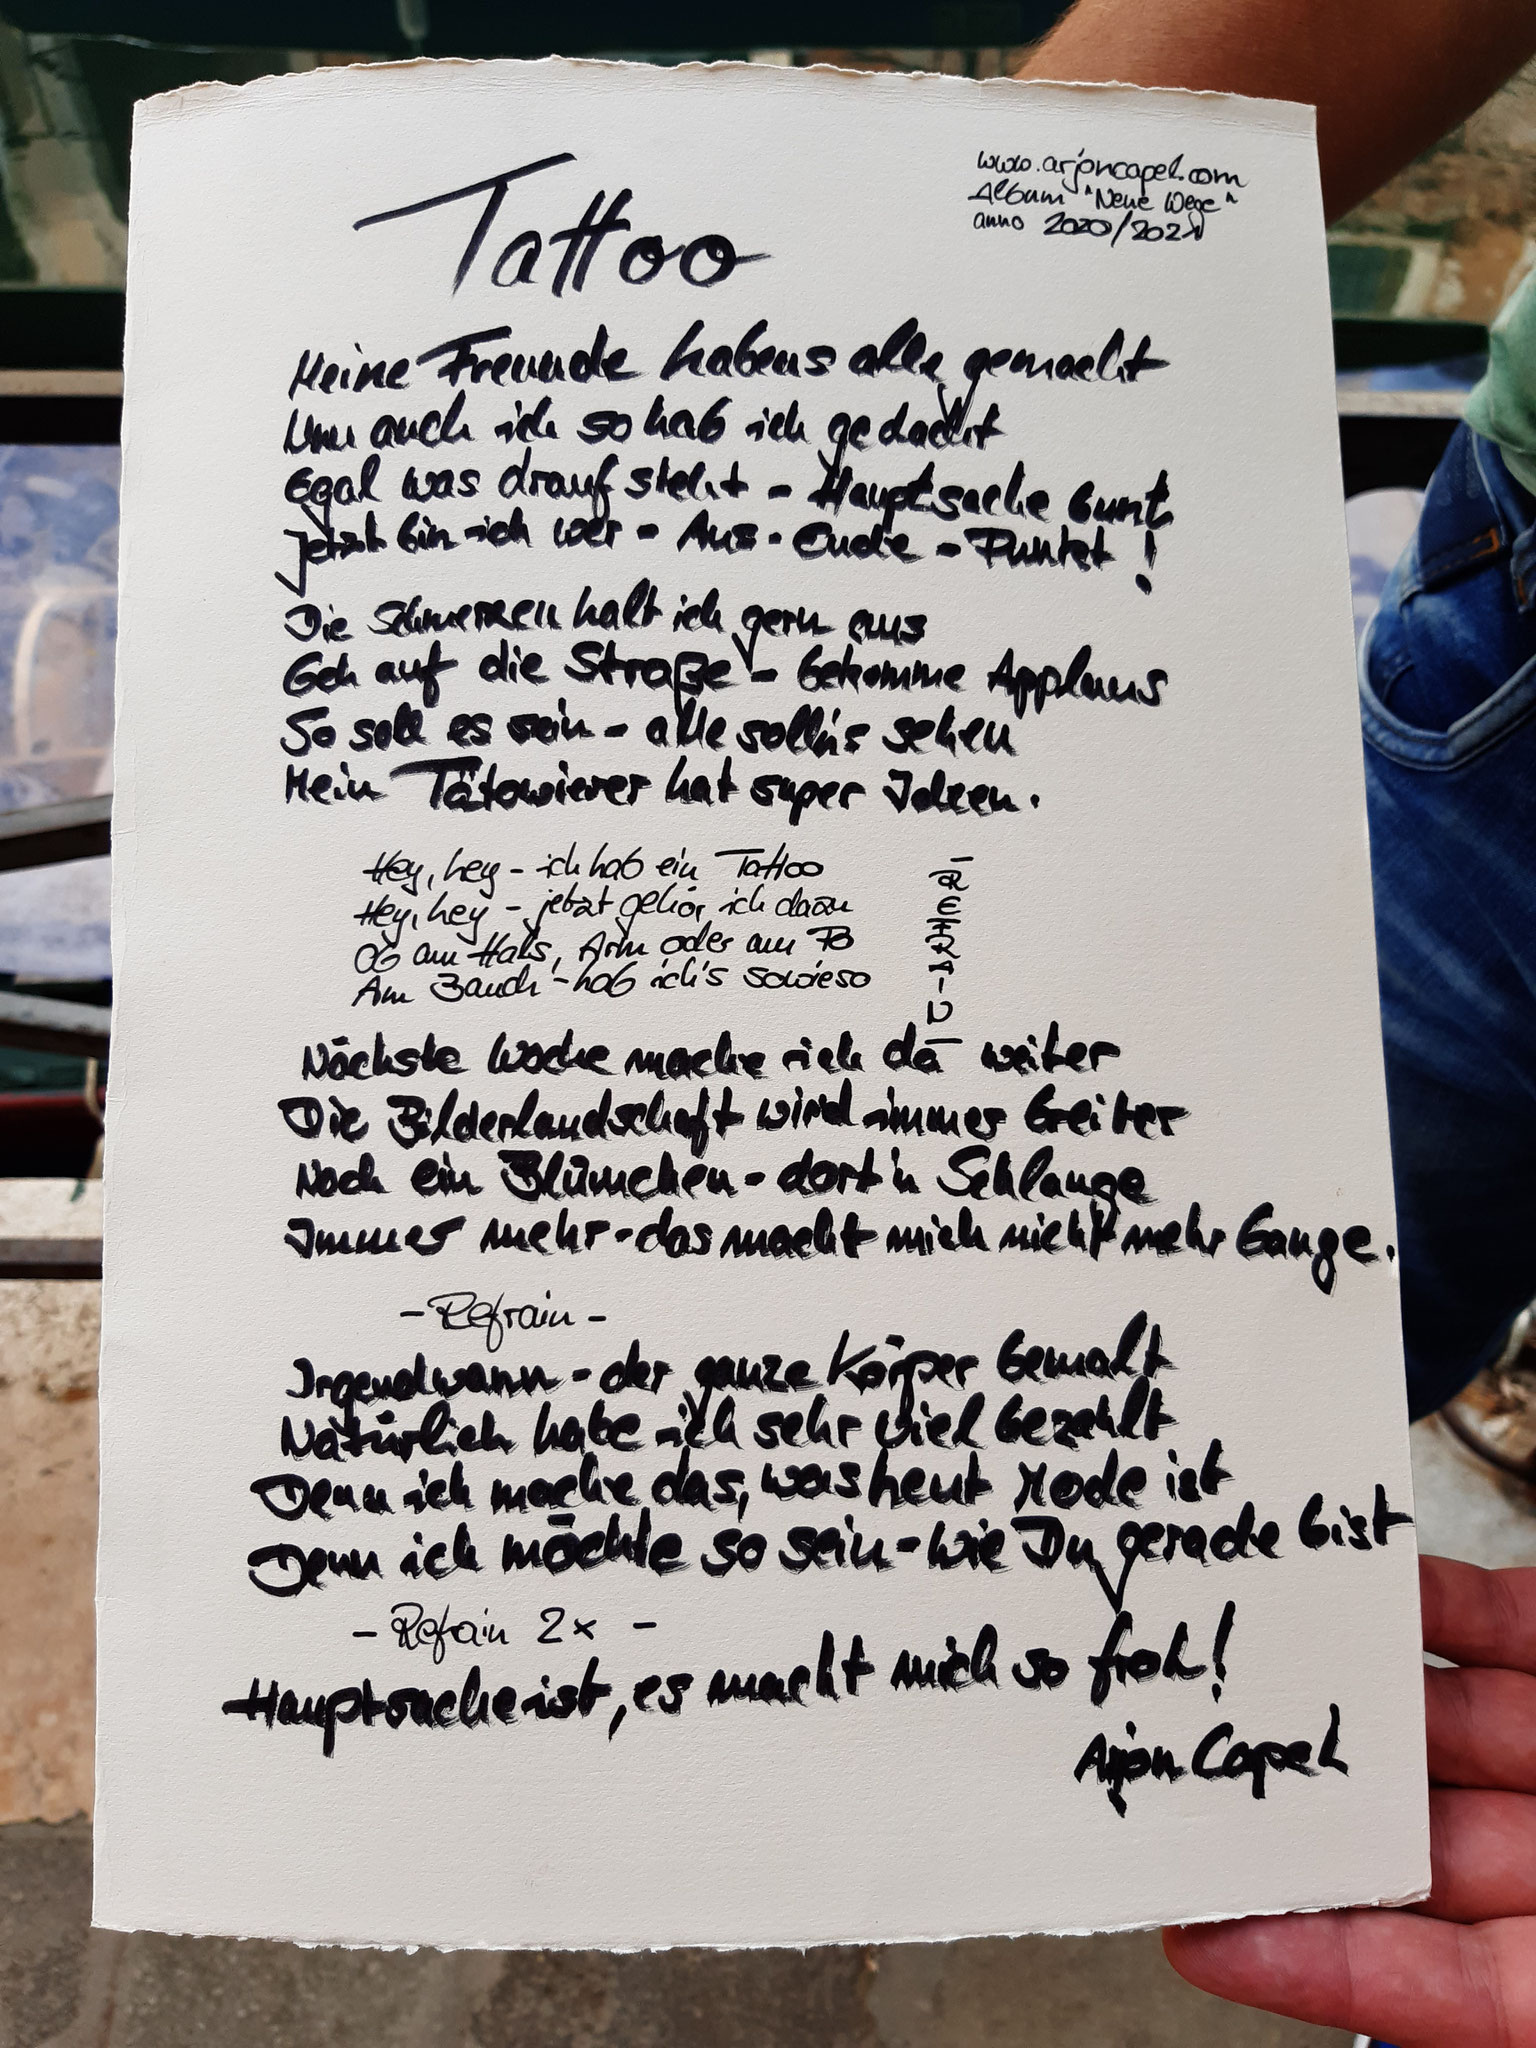 Tattoo
www.arjoncapel.com
Album "Neue Wege"
anno 2020/2021
Meine Freunde habens alle gemacht
Nun auch ich so hab ich gedacht
Egal was drauf steht - Hauptsache bunt
jetzt bin ich wer - Aus - Ende - Punkt!
Die Schmerzen halt ich gern aus
Geh auf die Straße - bekomme Applaus
So soll es sein - alle soll'n's sehen
Mein Tätowierer hat super Ideen.
Hey, hey - ich hab ein Tattoo
Hey, hey - jetzt gehör ich dazu
Ob am Hals, Arm oder am Po
Am Bauch - hab ich's sowieso
- REFRAIN -
Nächste Woche mache ich da weiter
Die Bilderlandschaft wird immer breiter
Noch ein Blümchen - dort'n Schlange
Immer mehr - das macht mich nicht mehr bange.
- Refrain -
Irgendwann - der ganze Körper bemalt
Natürlich habe ich sehr viel bezahlt
Denn ich mache das, was heut Mode ist
Denn ich möchte so sein - wie Du gerade bist
- Refrain 2x -
Hauptsache ist, es macht mich so froh!
Arjon Capel